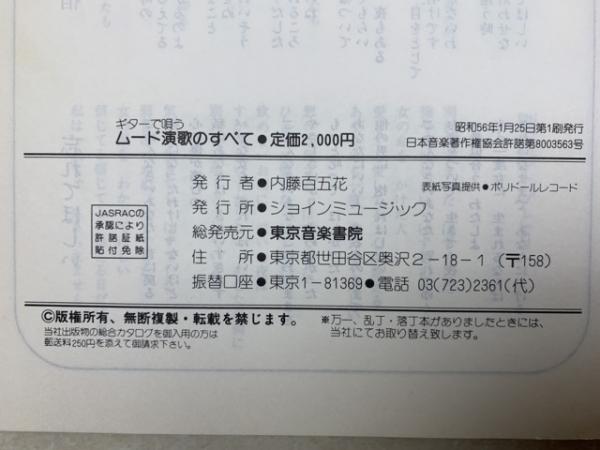 ギターで唄う
ムード演歌のすべて●定価2,000円
昭和56年1月25日第1刷発行
日本音楽著作権協会許諾第8003563号
JASRACの
承認により
許諾証紙
貼付免除
発行者●内藤百五花
表紙写真提供●ポリドールレコード
発行所●ショインミュージック
総発売元●東京音楽書院
住所●東京都世田谷区奥沢2-18-1(〒158)
振替口座●東京1-81369●電話 03(723)2361(代)
©版権所有、無断複製・転載を禁じます。
当社出版物の総合カタログを御入用の方は
郵送料250円を添えて御請求下さい。
※万一、乱丁・落丁本がありましたときには、
当社にてお取り替え致します。